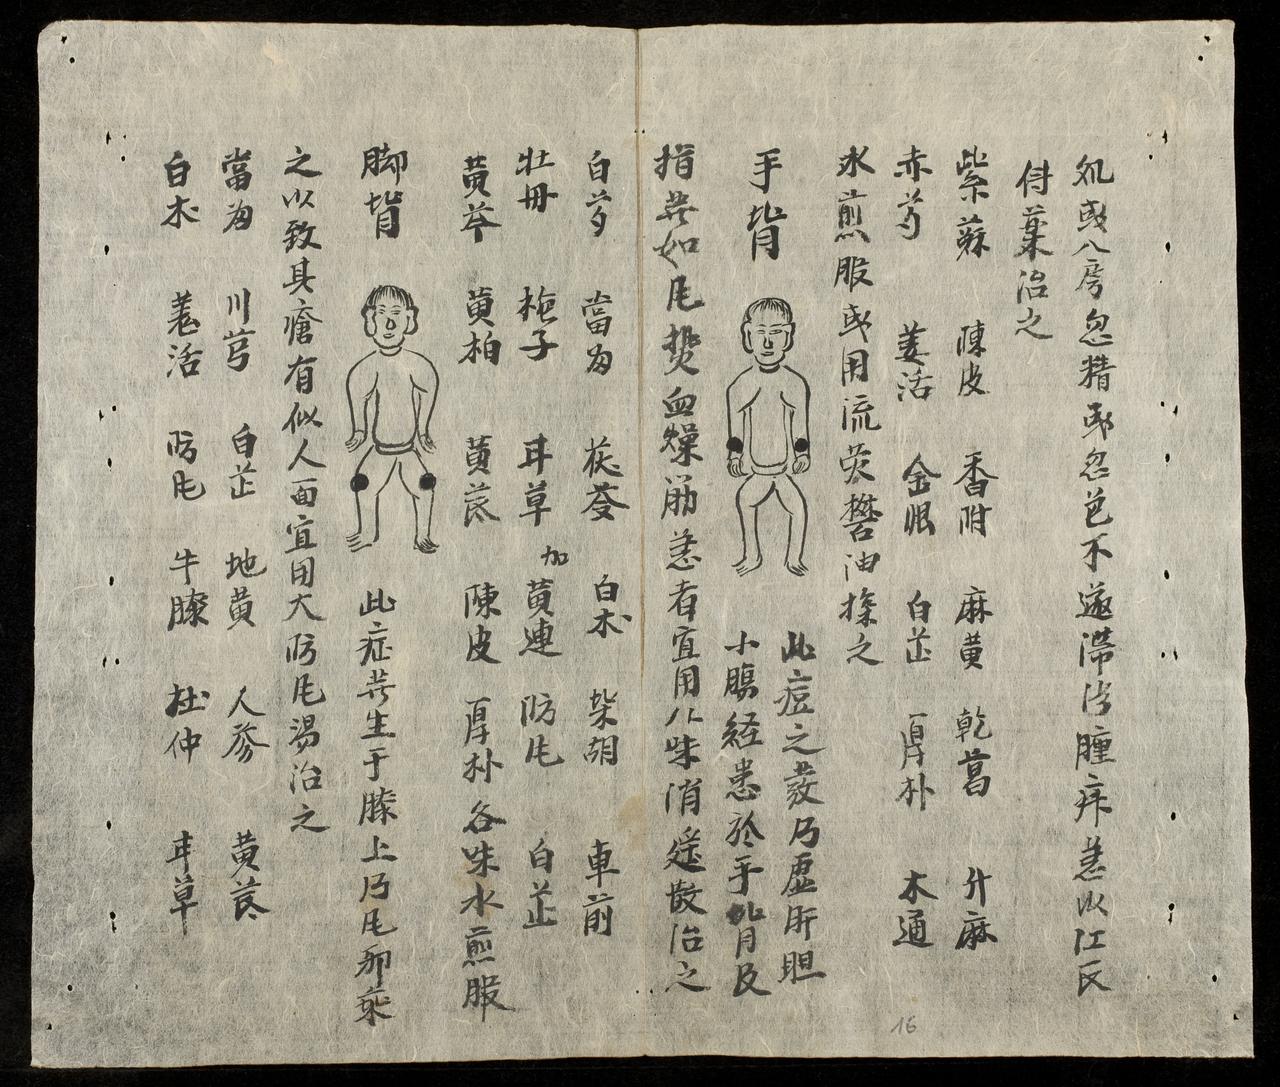 或八房忽精或忽芭不遂滞湾腫痒恙以江民
侍葉治之
紫蘇 陳皮 香附 麻黄 乾葛 升麻
赤芍 羌活 金眼 白芷 厚朴 木通
水煎服或用流黄礬油搽之
手背
此痘之發乃虛肝胆
小腸経患於手背及
指共如凨𤼵血燥筋恙者宜用八味消遥散治之
白芍 當匆 茯苓 白朮 柴胡 車前
牡冊 梔子 甘草 加黄連 防凨 白芷
黄芩 黄柏 黄茋 陳皮 厚朴 各味水煎服
脚背
此症共生于膝上乃凨邪乘
之以致具瘡有似人面宜用大防凨湯治之
當匆 川芎 白芷 地黄 人參 黄茋
白朮 羌活 防凨 牛膝 杜仲 甘草
16